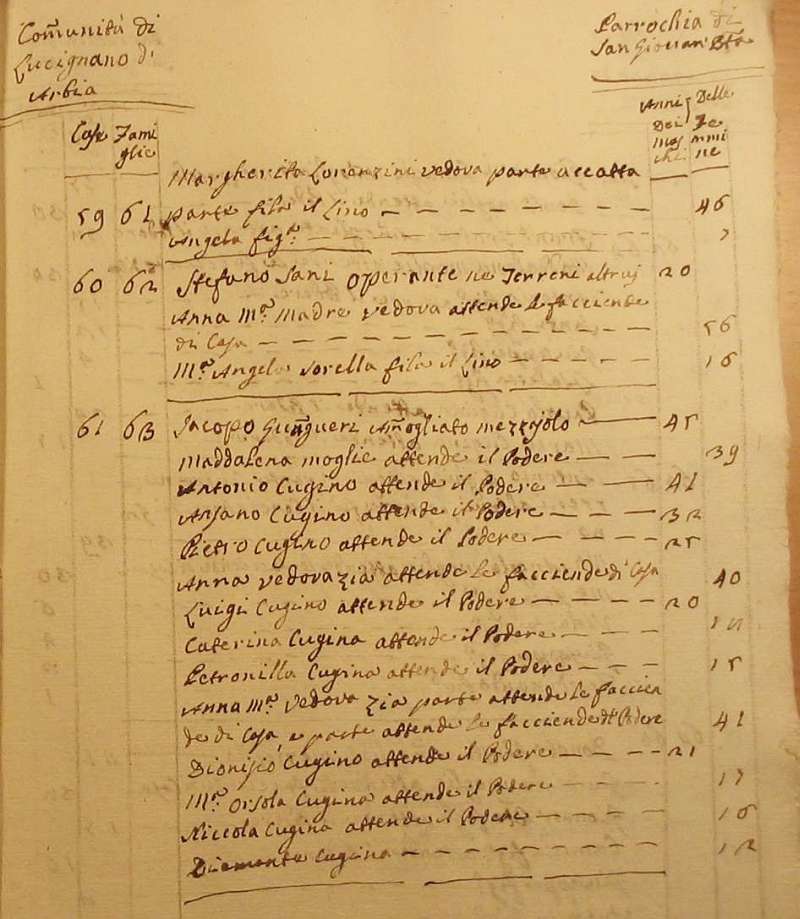 Com̃unità di
Lucignano d'
Arbia
Parrochia di
San Giovan Bta
Case Fami
glie
Anni Delle
Dei Fe
mas mmi
chi ne
Margherita Lorenzini vedova parte accatta
59 61 parte fila il Lino 46
Angela figa. 7
60 62 Stefano Sani Operante ne Terreni altrui 20
Anna Ma. Madre vedova attende le faccende
di Casa 56
Ma. Angela sorella fila il Lino 16
61 63 Jacopo Am̃ogliato mezzajolo 45
Maddalena moglie attende il Podere 39
Antonio Cugino attende il Podere 41
Ansano Cugino attende il Podere 32
Pietro Cugino attende il Podere 25
Anna vedova zia attende le facciende di Casa 40
Luigi Cugino attende il Podere 20
Caterina Cugina attende il Podere
Petronilla Cugina attende il Podere 15
Anna Ma. vedova zia parte attende le faccien
de di Casa, e parte attende le facciende del Podere 41
Dionisio Cugino attende il Podere 21
Ma. Orsola Cugina attende il Podere 17
Niccola Cugina attende il Podere 16
Diamante Cugina 12